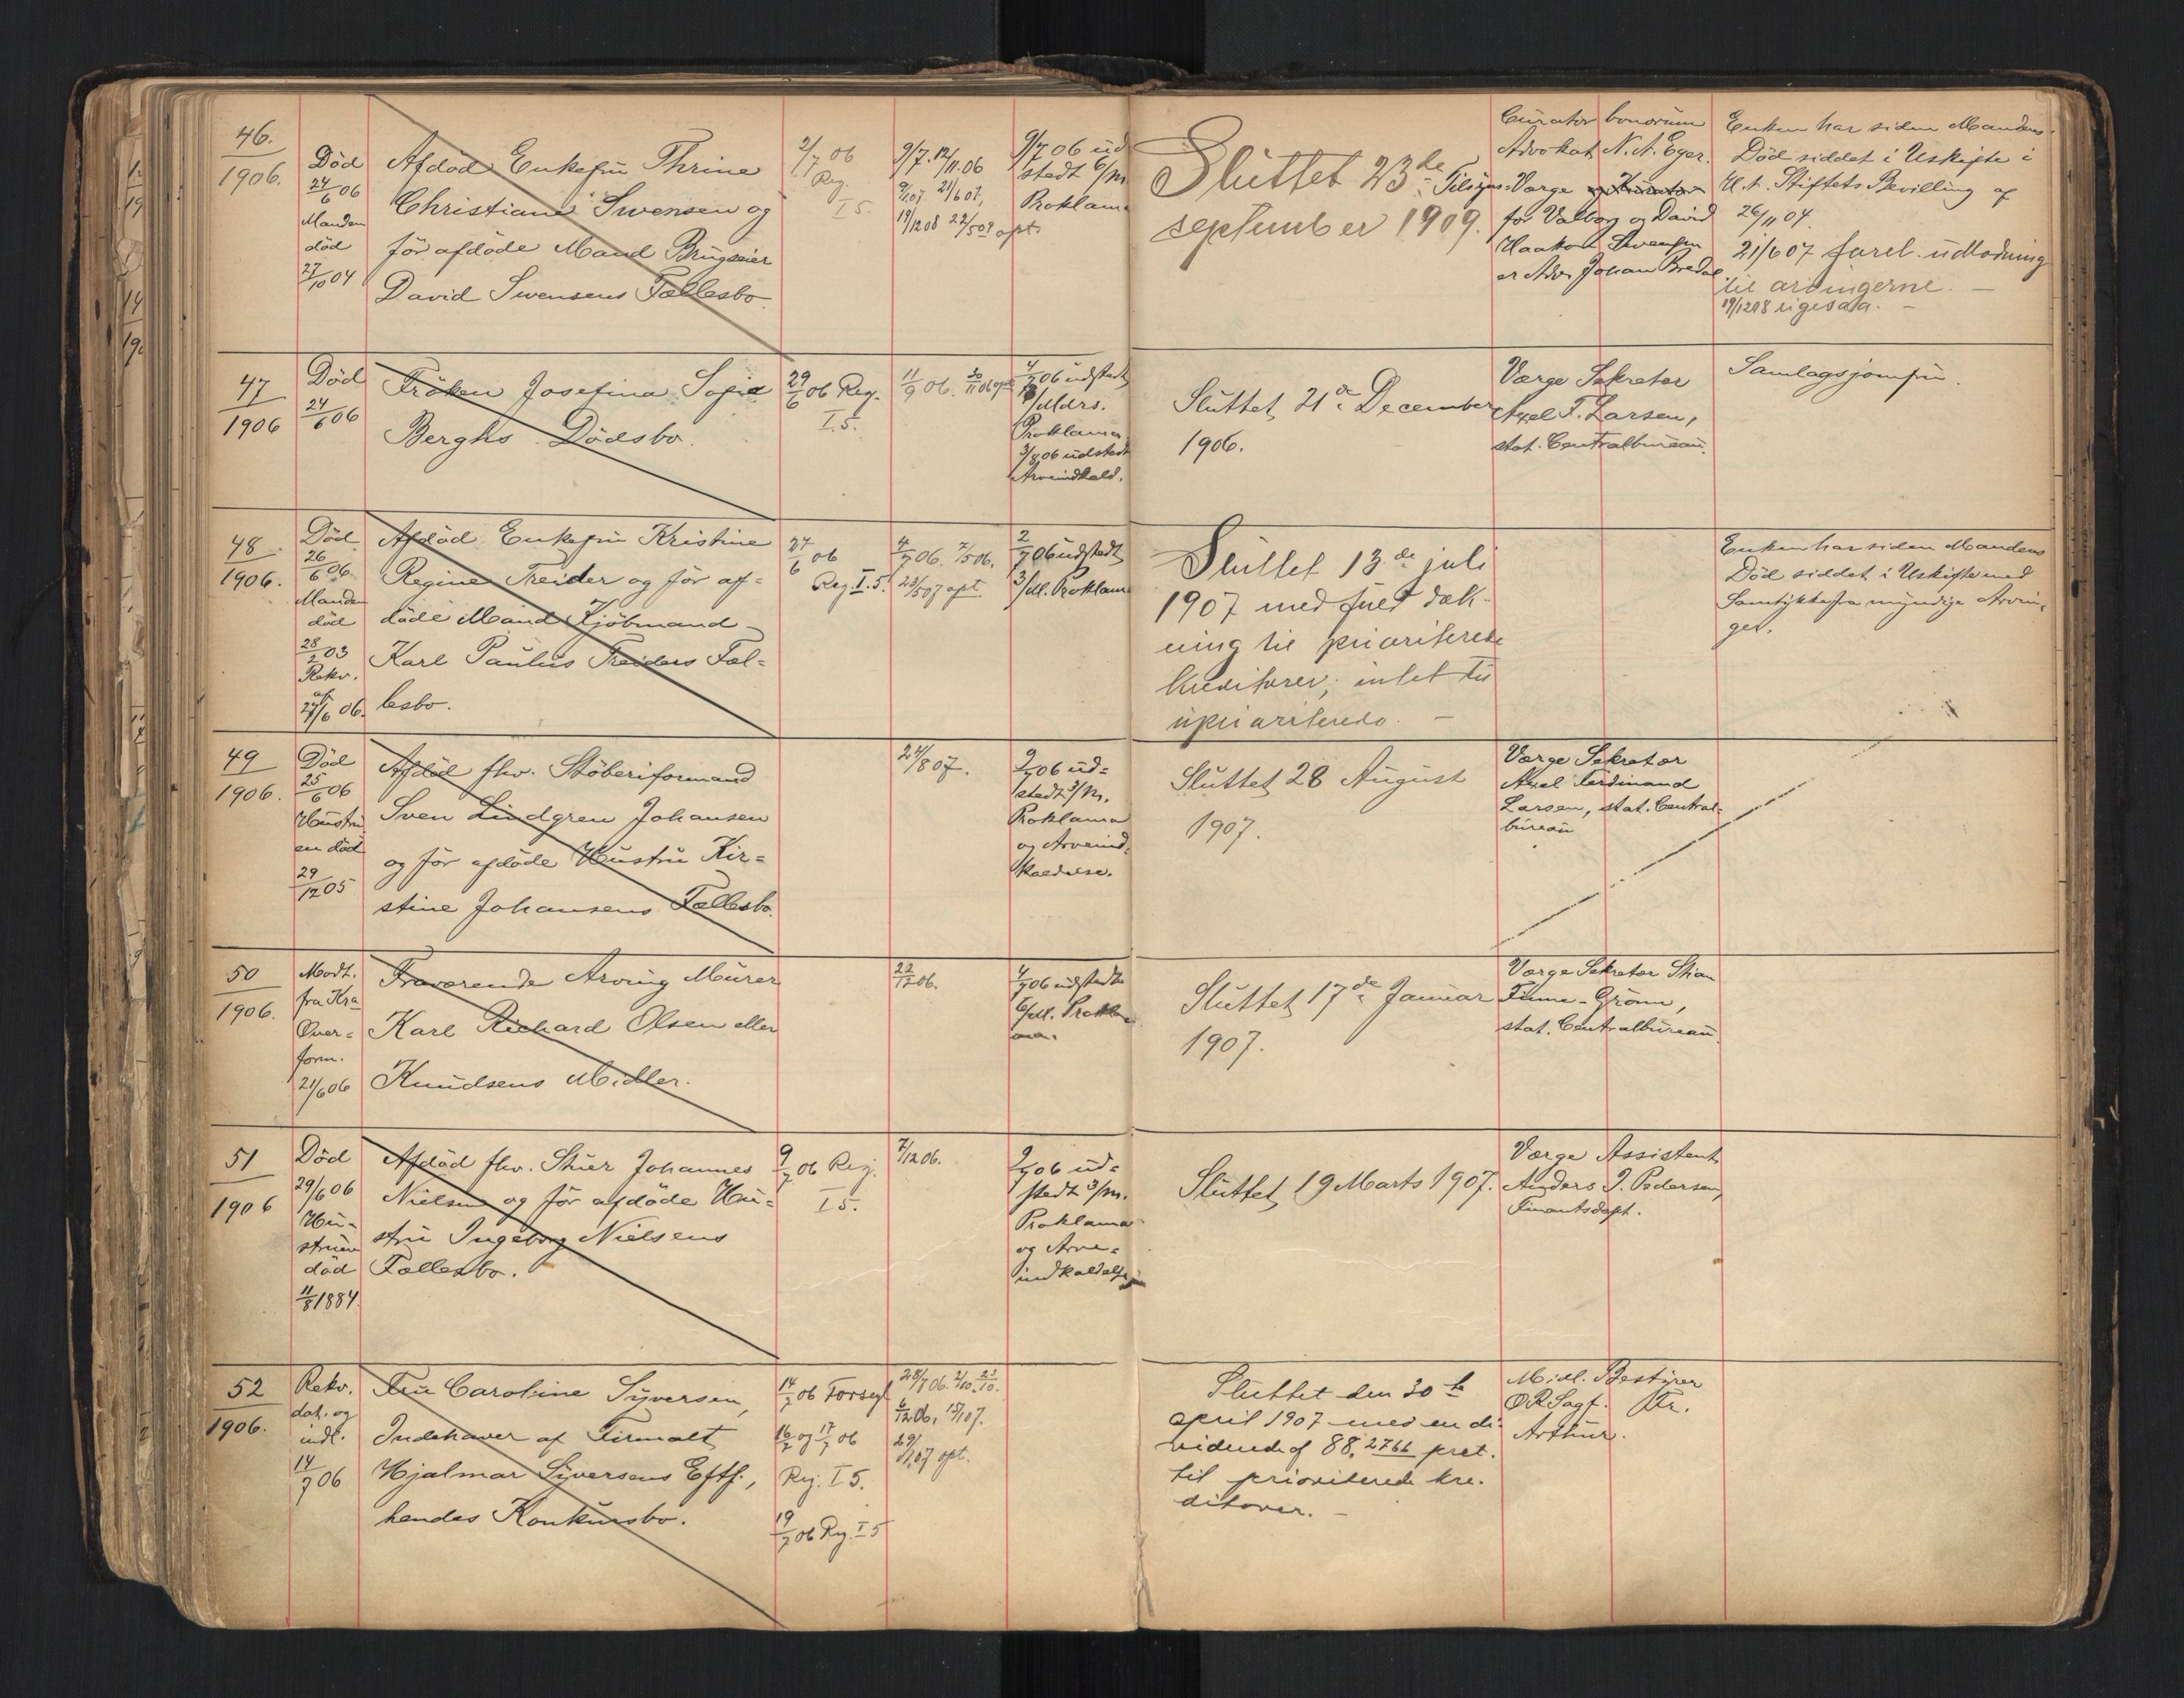 46.
1906.
Död
24/6 06
Manden
död
27/10 04
Afdöd Enkefru Thrine
Christiane Swensen og
för afdöde Mand Brugseier
David Swensens Fællesbo
2/7 06
Reg.
I 5.
9/7. 12/11.06
21/6 07,
19/12 08 22/5 09 opt.
9/7 06 ud
stedt 6/m
Proklama
Sluttet 23de
september 1909.
Curator bonorum
Advokat N. A. Eger.
Tilsyns-Værge og Kurator
for Valborg og David
Haakon Swensen
er Adv. Johan Bredal
Enken har siden Mandens
Död siddet i Uskifte i
H. t. Stiftets Bevilling af
26/11 04.
21/6 07 forel. udlodning
til arvingerne. —
19/12 08 ligesaa. —
47
1906
Död
24/6 06
Fröken Josefina Sofie
Berghs Dödsbo.
29/6 06 Reg.
I. 5.
11/9 06.
4/7 06 udstedt
/Mdrs.
Proklama
3/8 06 udstedt
Arveindkald.
Sluttet 21de December
1906.
Værge Sekretær
Axel F. Larsen,
stat. Centralbureau.
Samlagsjomfru.
48
1906.
Död
26/6 06
Manden
död
28/2 03
Rekv.
af
27/6 06.
Afdöd Enkefru Kristine
Regine Treider og för af=
döde Mand Kjöbmand
Karl Paulus Treiders Fæl=
lesbo.
27/6 06
Reg. I. 5.
4/7 06.
23/5 07 opt.
2/7 06 udstedt
3/M. Proklama
Sluttet 13de juli
1907 med fuld dæk-
ning til prioriterede
kreditorer; intet til
uprioriterede. —
Enken har siden Mandens
Död siddet i Uskifte med
Samtykke fra myndige Arvin-
ger.
49
1906.
Död
25/6 06
Hustru
en död
29/12 05
Afdöd fhv. Stöberiformand
Sven Lindgren Johansen
og för afdöde Hustru Kir=
stine Johansens Fællesbo.
2/7 06 ud=
stedt 3/m.
Proklama
og Arveind=
kaldelse.
Sluttet 28 August
1907.
Værge Sekretær
Axel Ferdinand
Larsen, stat. Central-
bureau
50
1906.
Modt.
fra Kra
Over=
form.
21/6 06
Fraværende Arving Murer
Karl Richard Olsen eller
Knudsens Midler.
22/12 06.
4/7 06 udstedt
6/M. Prokla
ma.
Sluttet 17de Januar
1907.
Værge Sekretær Stian
Finne-Grönn,
stat. Centralbureau.
51
1906
Död
29/6 06
Hu-
struen
död
11/8 1884.
Afdöd fhv. Stuer Johannes
Nielsen og för afdöde Hu=
stru Ingeborg Nielsens
Fællesbo.
9/7 06 Reg.
I 5.
7/12 06.
2/7 06 ud=
stedt 3/m.
Proklama
og Arve=
indkaldelse
Sluttet 19 Marts 1907.
Værge Assistent
Anders J. Pedersen,
Finantsdept.
52
1906.
Rekv.
dat. og
indl.
14/7 06
Fru Caroline Syversen,
Indehaver af Firmaet
Hjalmar Syversens Eftf.,
hendes Konkursbo.
14/7 06 Forsegl
16/7 og 17/7 06
Reg. I 5.
19/7 06 Reg. I 5
opt.
Sluttet den 30te
april 1907 med en di-
vidende af 88,2766 prct.
til prioriterede kre-
ditorer. —
Midl. Bestyrer
O.R.Sagf.
Arthur.